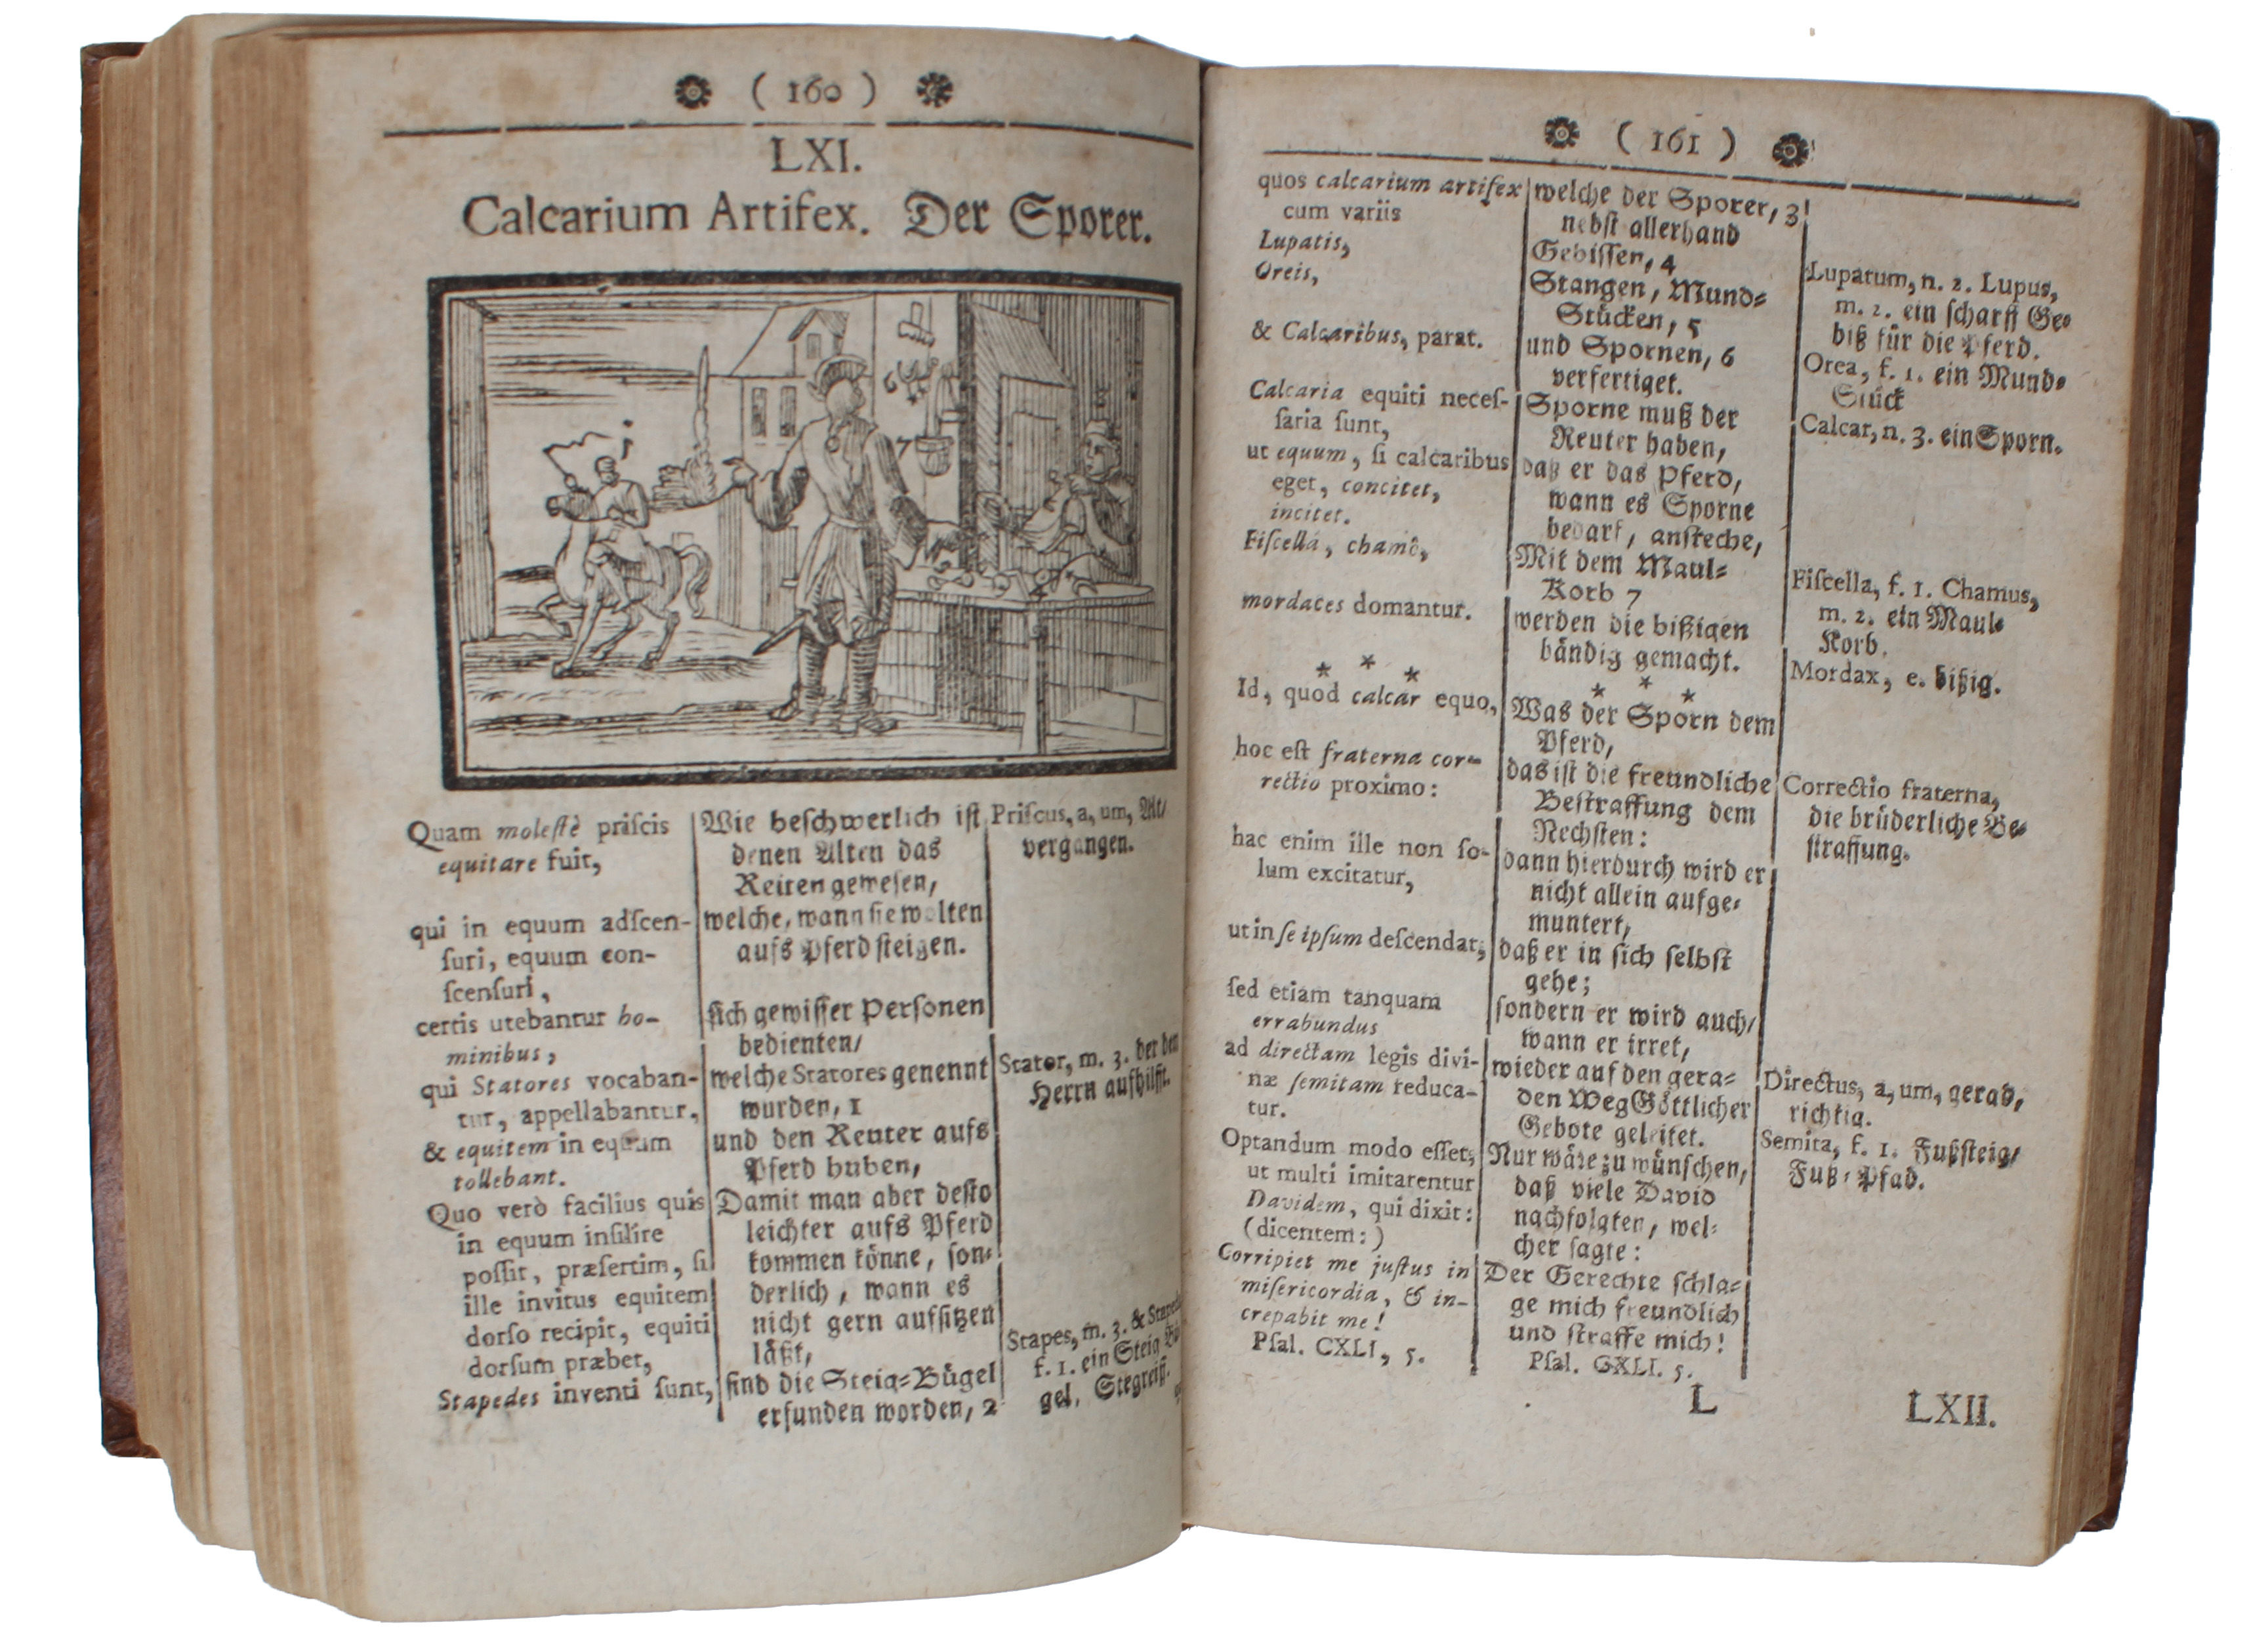 ( 160 )
LXI.
Calcarium Artifex. Der Sporer.
7
4
Quam molestè priscis
equitare fuit,
qui in equum adſcen-
ſuri, equum con-
ſcenſuri,
certis utebantur ho-
minibus,
qui Statores vocaban-
tur, appellabantur,
& equitem in equum
tollebant.
Quo verò facilius quis
in equum inſilire
poſſit, præſertim, ſi
ille invitus equitem
dorſo recipit, equiti
dorſum præbet,
Stapedes inventi ſunt,
Wie beſchwerlich iſt
denen Alten das
Reiten geweſen,
welche, wann ſie wolten
aufs Pferd ſteigen.
ſich gewiſſer Perſonen
bedienten/
welche Statores genennt
wurden, 1
und den Reuter aufs
Pferd huben,
Damit man aber deſto
leichter aufs Pferd
kommen könne, ſon⸗
derlich, wann es
nicht gern aufſitzen
läßt,
ſind die Steig⸗Bügel
erfunden worden, 2
Priſcus, a, um, Alt/
vergangen.
Stator, m. 3. der den
Herrn aufhilfft.
Stapes, m. 3. &
f. 1. ein Steig
gel, Stegreiff.
( 161 )
quos calcarium artifex
cum variis
Lupatis,
Oreis,
& Calcaribus, parat.
Calcaria equiti neceſ-
ſaria ſunt,
ut equum, ſi calcaribus
eget, concitet,
incitet.
Fiſcellâ, chamô,
mordaces domantur.
* * *
Id, quod calcar equo,
hoc eſt fraterna cor-
rectio proximo:
hac enim ille non ſo-
lum excitatur,
ut in ſe ipſum deſcendat;
ſed etiam tanquam
errabundus
ad directam legis divi-
næ ſemitam reduca-
tur.
Optandum modo eſſet,
ut multi imitarentur
Davidem, qui dixit:
(dicentem:)
Corripiet me juſtus in
miſericordia, & in-
crepabit me!
Pſal. CXLI, 5.
welche der Sporer, 3
nebſt allerhand
Gebiſſen, 4
Stangen, Mund⸗
Stücken, 5
und Spornen, 6
verfertiget.
Sporne muß der
Reuter haben,
daß er das Pferd,
wann es Sporne
bedarf, anſteche,
Mit dem Maul⸗
Korb 7
werden die bißigen
bändig gemacht.
* * *
Was der Sporn dem
Pferd,
das iſt die freundliche
Beſtraffung dem
Nechſten:
dann hierdurch wird er
nicht allein aufge⸗
muntert,
daß er in ſich ſelbſt
gehe;
ſondern er wird auch/
wann er irret,
wieder auf den gera⸗
den Weg Göttlicher
Gebote geleitet.
Nur wäre zu wünſchen,
daß viele David
nachfolgten, wel⸗
cher ſagte:
Der Gerechte ſchla⸗
ge mich freundlich
und ſtraffe mich!
Pſal. GXLI. 5.
Lupatum, n. 2. Lupus,
m. 2. ein ſcharff Ge⸗
biß für die Pferd.
Orea, f. 1. ein Mund⸗
Stück
Calcar, n. 3. ein Sporn.
Fiſcella, f. 1. Chamus,
m. 2. ein Maul⸗
Korb.
Mordax, e. bißig.
Correctio fraterna,
die brüderliche Be⸗
ſtraffung.
Directus, a, um, gerad,
richtig.
Semita, f. 1. Fußſteig/
Fuß⸗Pfad.
L
LXII.